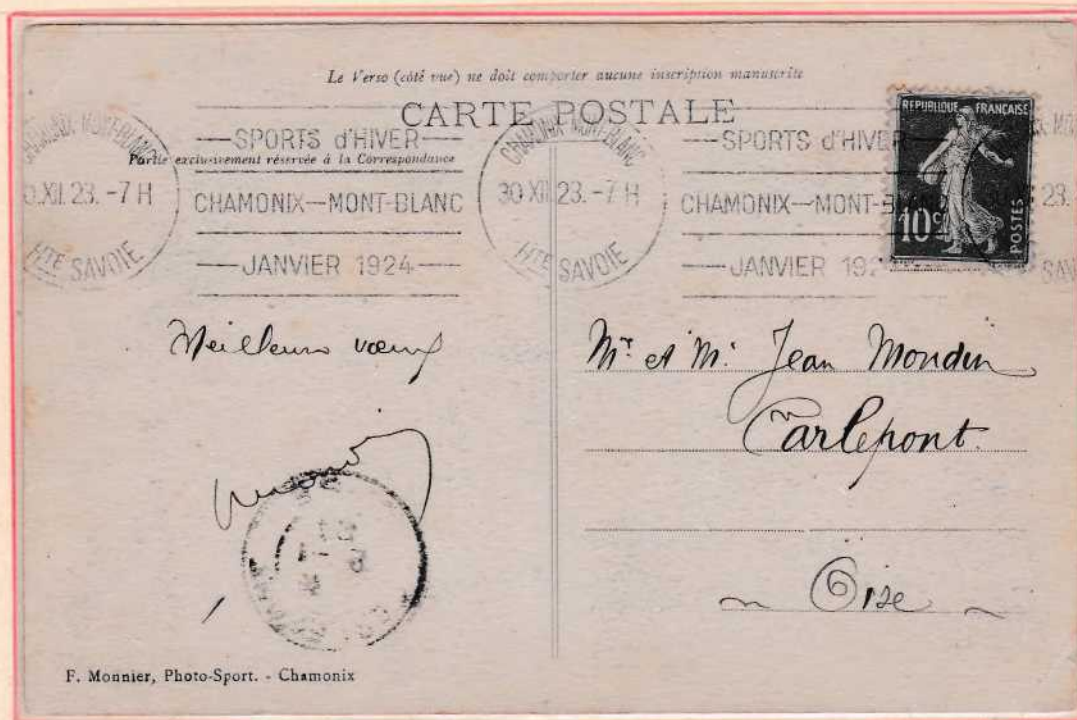 Le Verso (côté vue) ne doit comporter aucune inscription manuscrite
CARTE POSTALE
Partie exclusivement réservée à la Correspondance
CHAMONIX-MONT-BLANC
.XII 23. -7 H
HTE SAVOIE
SPORTS d'HIVER
CHAMONIX-MONT-BLANC
JANVIER 1924
CHAMONIX-MONT-BLANC
30 XII 23. -7 H
HTE SAVOIE
SPORTS d'HIVER
CHAMONIX-MONT-BLANC
JANVIER 192
REPUBLIQUE FRANÇAISE
10c
POSTES
23.
SAV
Meilleurs vœux
Mr et Me Jean Mondin
Carlepont.
Oise
F. Monnier, Photo-Sport. - Chamonix